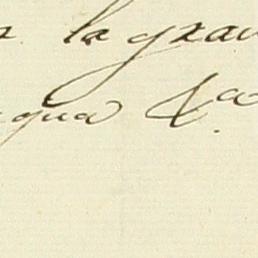 la gran
qua &a.